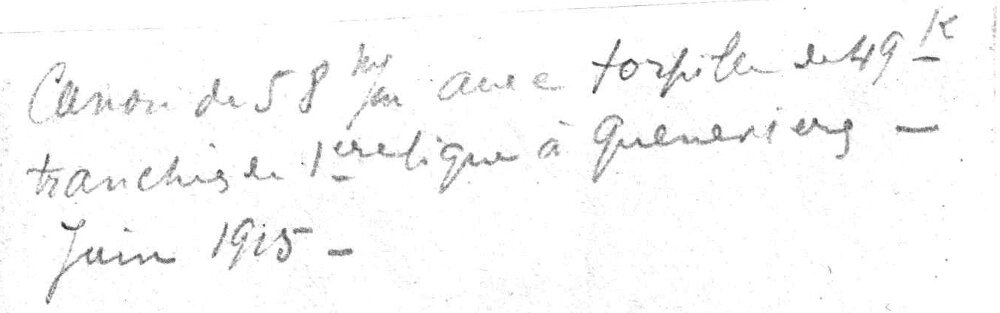 Canon de 58 m/m avec torpille de 49 k
tranchée de 1ere ligne à Quenevieres –
Juin 1915 –